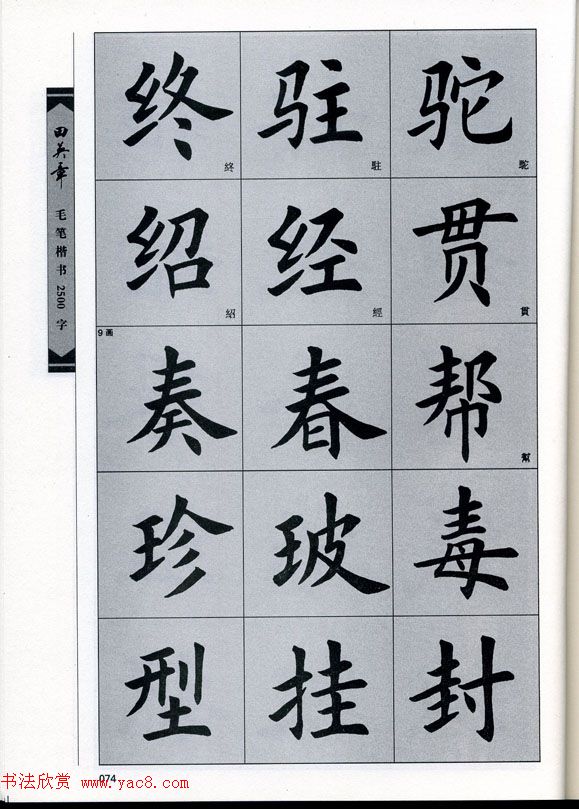 田英章 毛笔楷书2500字
终 驻 驼
終 駐 駝
绍 经 贯
紹 經 貫
9画
奏 春 帮
幫
珍 玻 毒
型 挂 封
074
书法欣赏 www.yac8.com